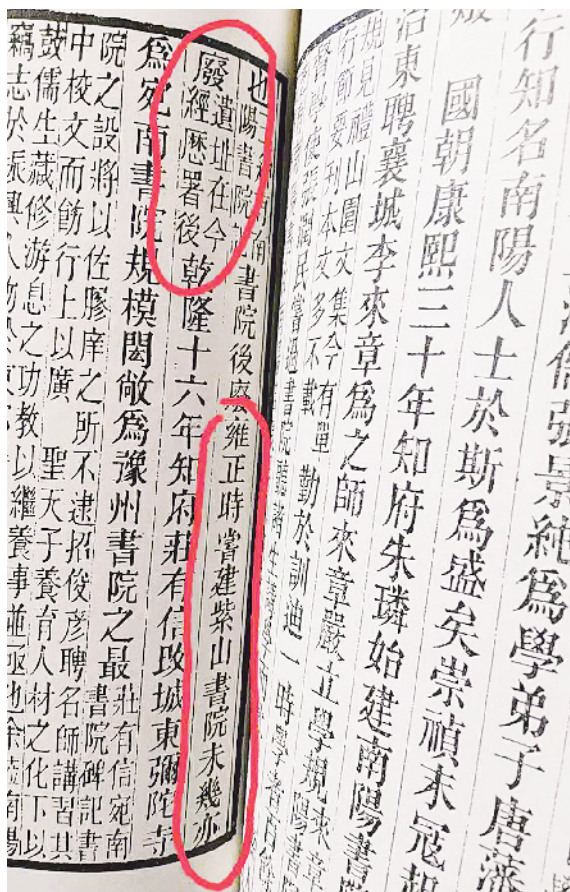 信張景純爲學弟子唐藩
行知名南陽人士於斯爲盛矣崇禎末冠
國朝康熙三十年知府朱璘始建南陽書
治東聘襄城李來章爲之師來章嚴立學規來章
陽書
規見禮山園文集今有單
行節要刊本文多不載
勤於訓迪一時學者百
督學使張潤民嘗過書院聽諸生講
也
陽書院記
書院後廢雍正時嘗建紫山書院未幾亦
廢遺址在今
經歷署後
乾隆十六年知府莊有信改城東彌陀寺
爲宛南書院規模閎敞爲豫州書院之最莊有信宛南
書院碑記書
院之設將以佐膠庠之所不逮招俊彥聘名師講習其
中校文而飭行上以廣 聖天子養育人材之化下以
鼓儒生藏修游息之功教以繼養事並亟也余蒞南陽
竊志於振興人